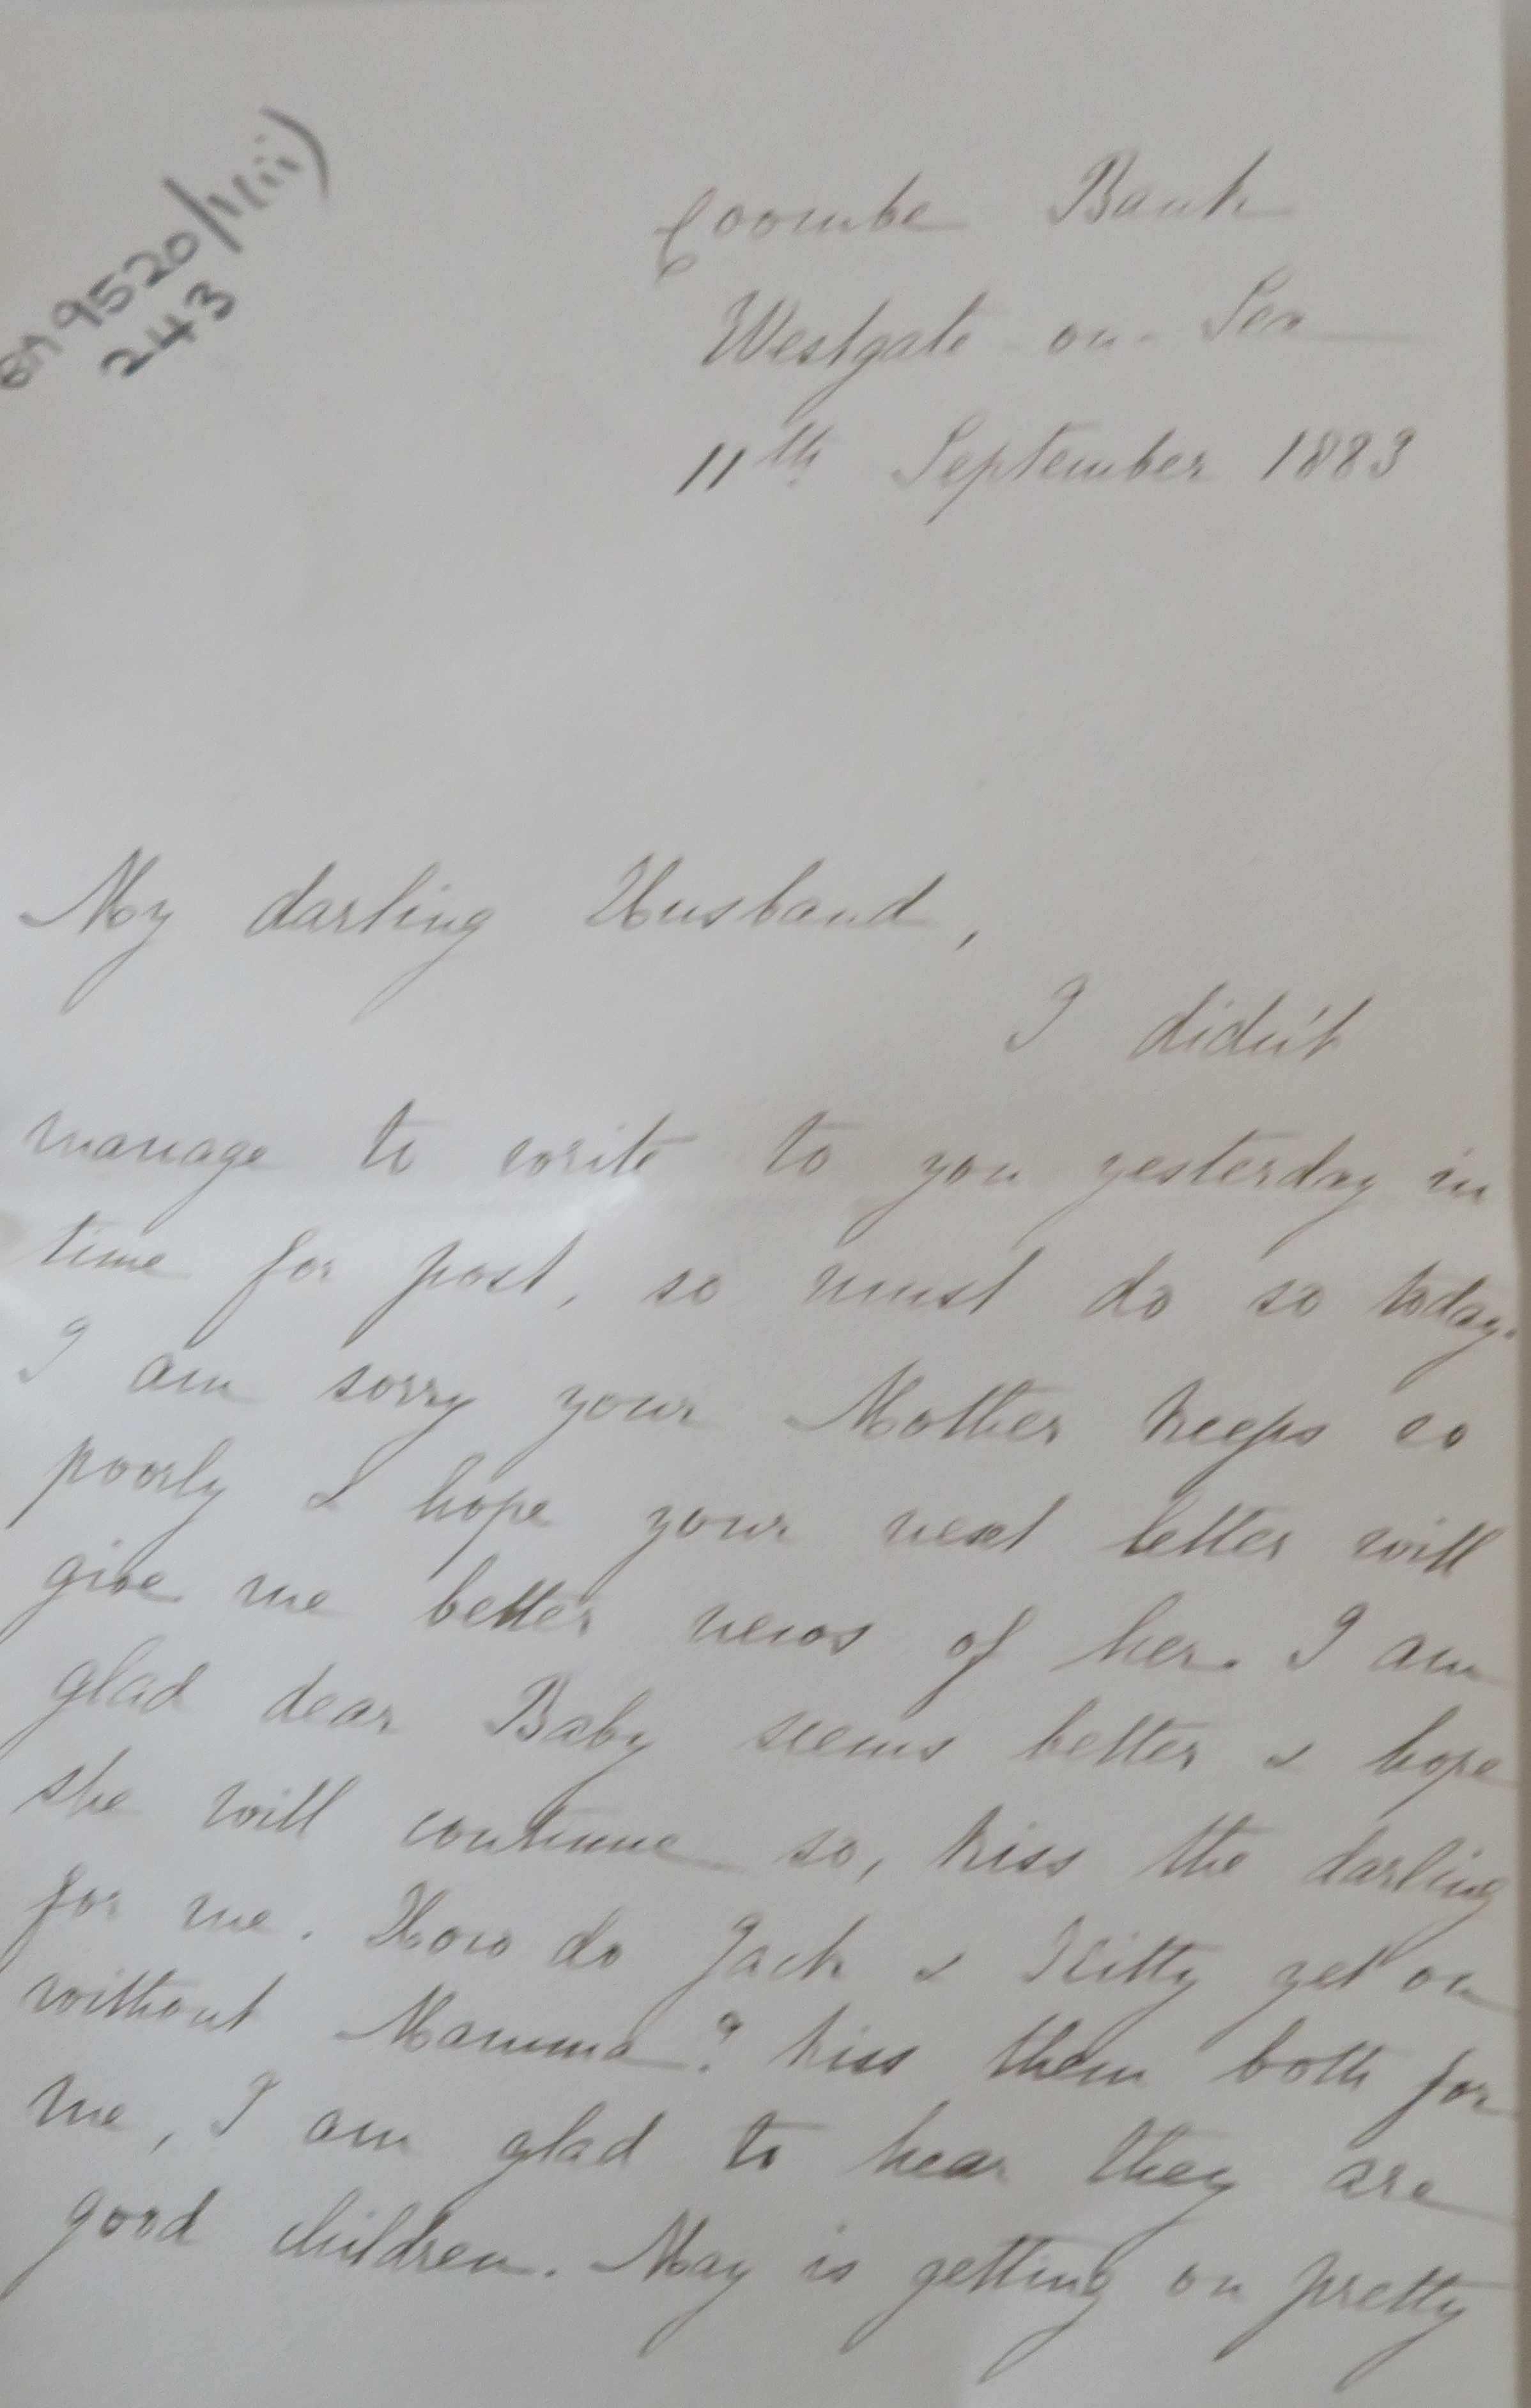 BA 9520/1(iii)
243
Coombe Bank
Westgate-on-Sea
11th September 1883
My darling Husband,
I didn't
manage to write to you yesterday in
time for post, so must do so today.
I am sorry your Mother keeps so
poorly & hope your next letter will
give me better news of her. I am
glad dear Baby seems better & hope
she will continue so, kiss the darling
for me. How do Jack & Kitty get on
without Mamma? kiss them both for
me, I am glad to hear they are
good children. May is getting on pretty